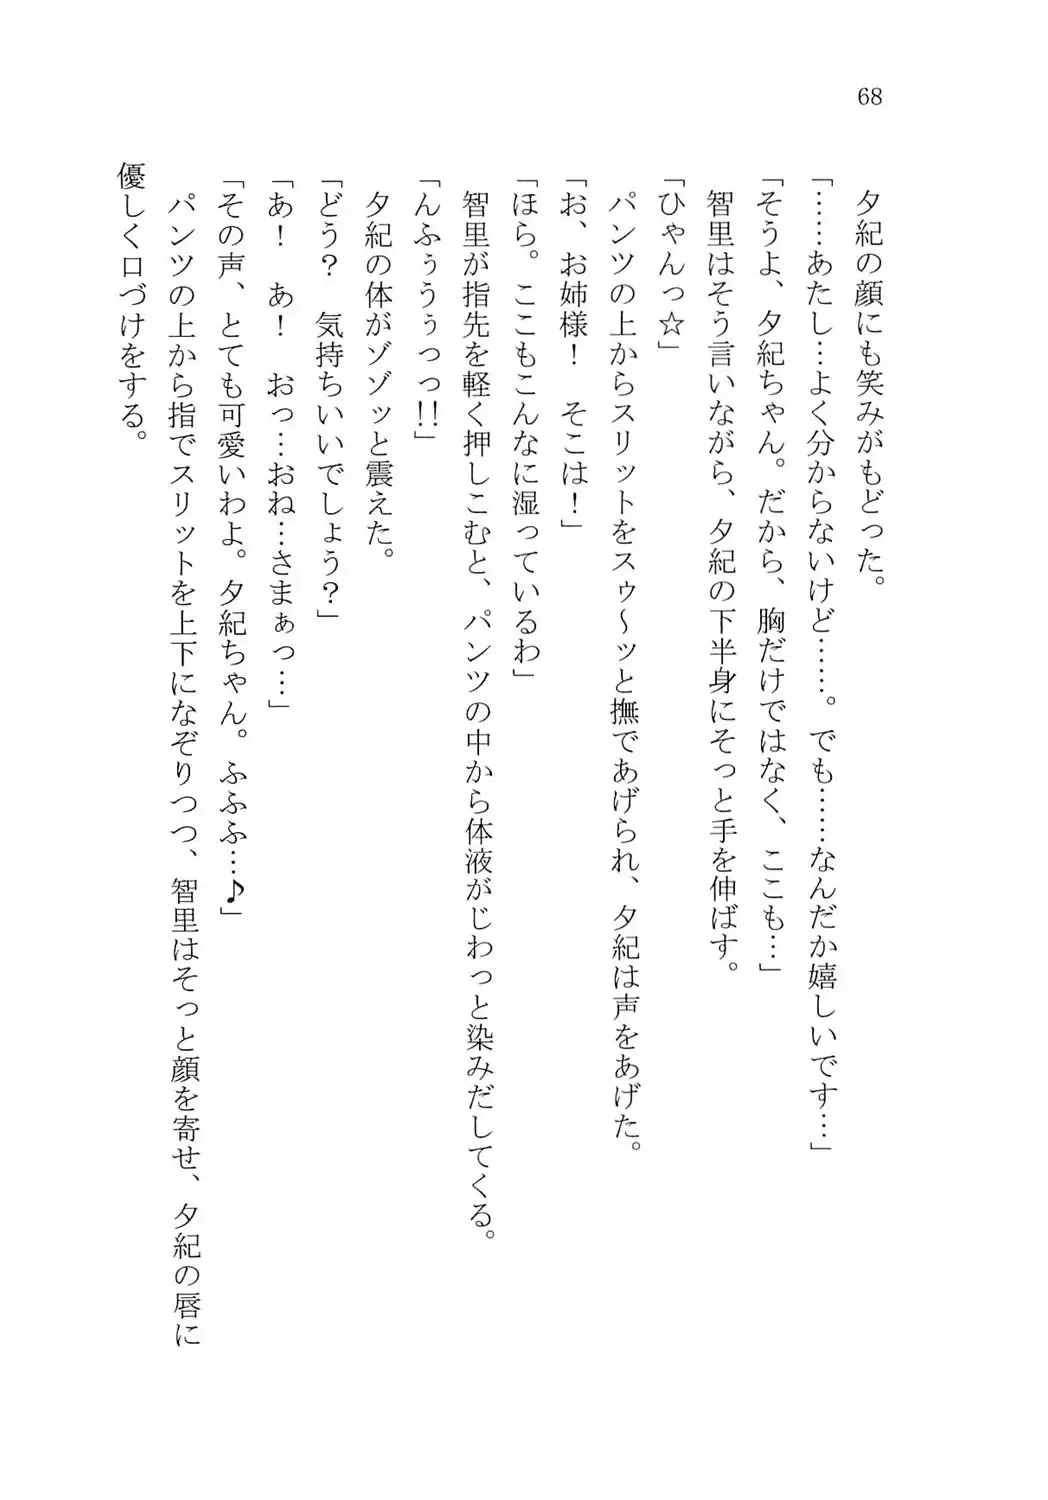 68
夕紀の顔にも笑みがもどった。
「……あたし…よく分からないけど……。でも……なんだか嬉しいです…」
「そうよ、夕紀ちゃん。だから、胸だけではなく、ここも…」
智里はそう言いながら、夕紀の下半身にそっと手を伸ばす。
「ひゃんっ☆」
パンツの上からスリットをスゥ～ッと撫であげられ、夕紀は声をあげた。
「お、お姉様！　そこは！」
「ほら。ここもこんなに湿っているわ」
智里が指先を軽く押しこむと、パンツの中から体液がじわっと染みだしてくる。
「んふぅうぅっっ!!」
夕紀の体がゾゾッと震えた。
「どう？　気持ちいいでしょう？」
「あ！　あ！　おっ…おね…さまぁっ…」
「その声、とても可愛いわよ。夕紀ちゃん。ふふふ…♪」
パンツの上から指でスリットを上下になぞりつつ、智里はそっと顔を寄せ、夕紀の唇に
優しく口づけをする。